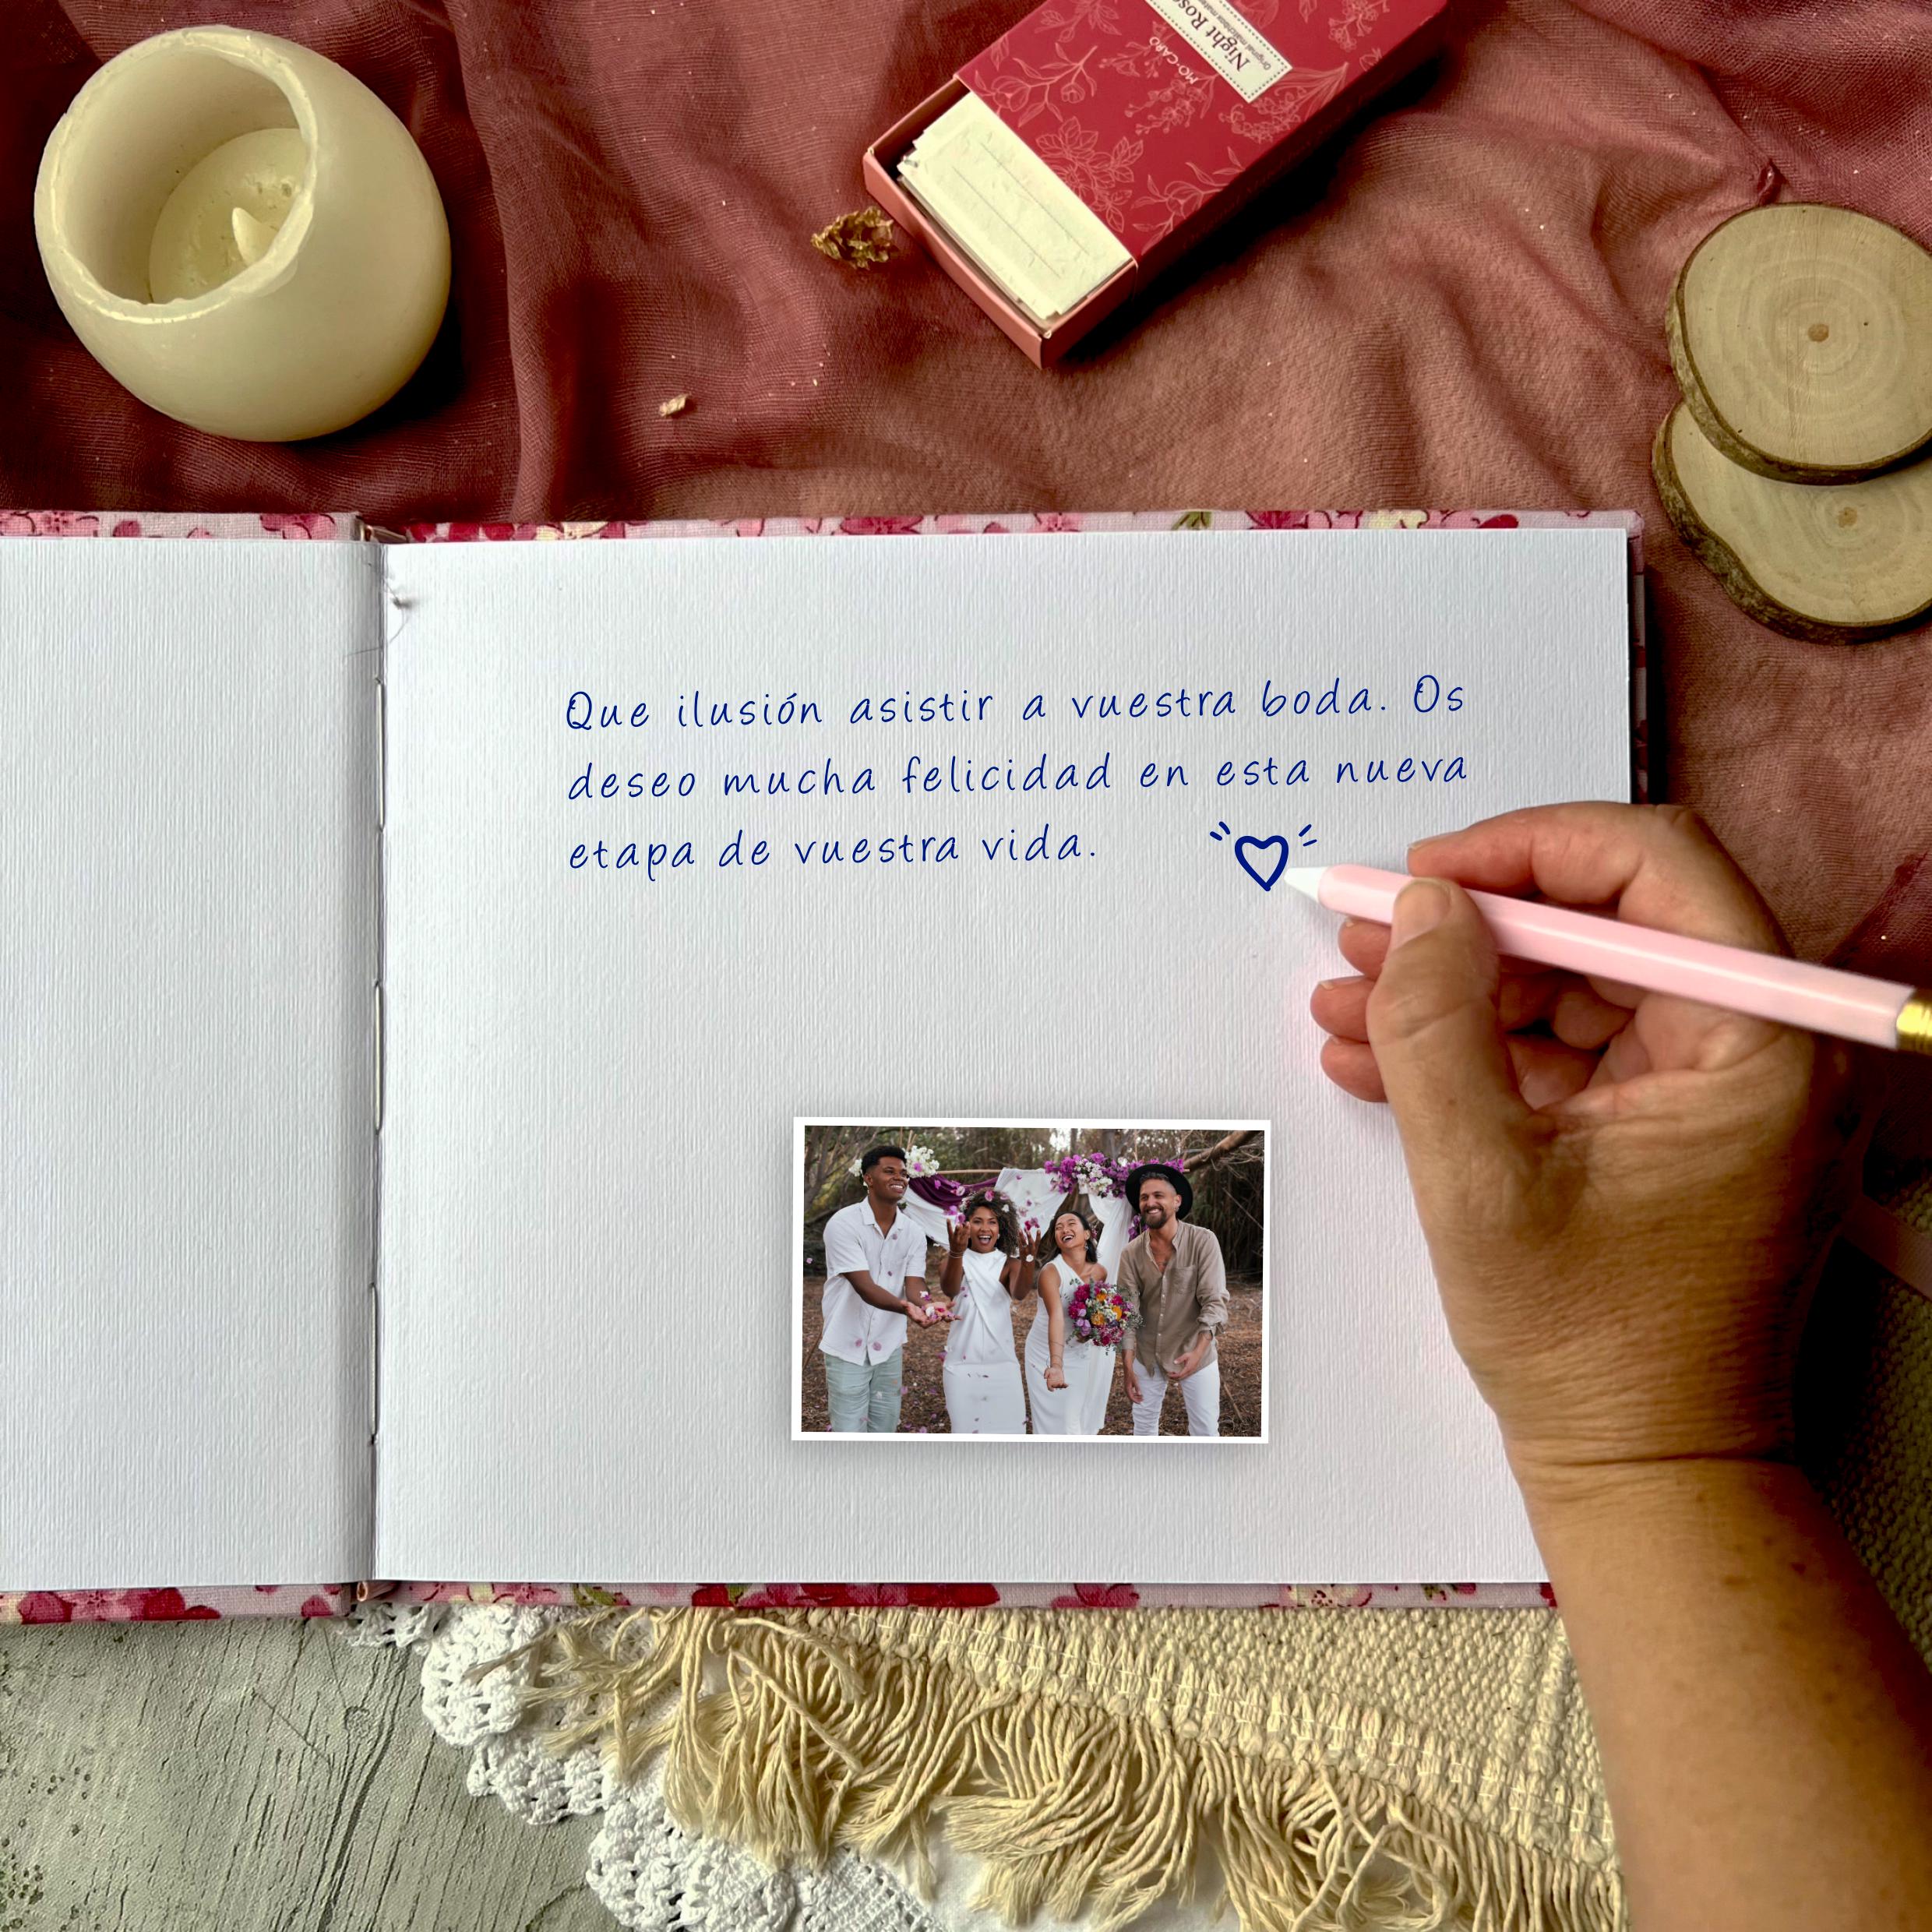 Night Rose
Original matchbox mate
MO·CARD
Que ilusión asistir a vuestra boda. Os
deseo mucha felicidad en esta nueva
etapa de vuestra vida.